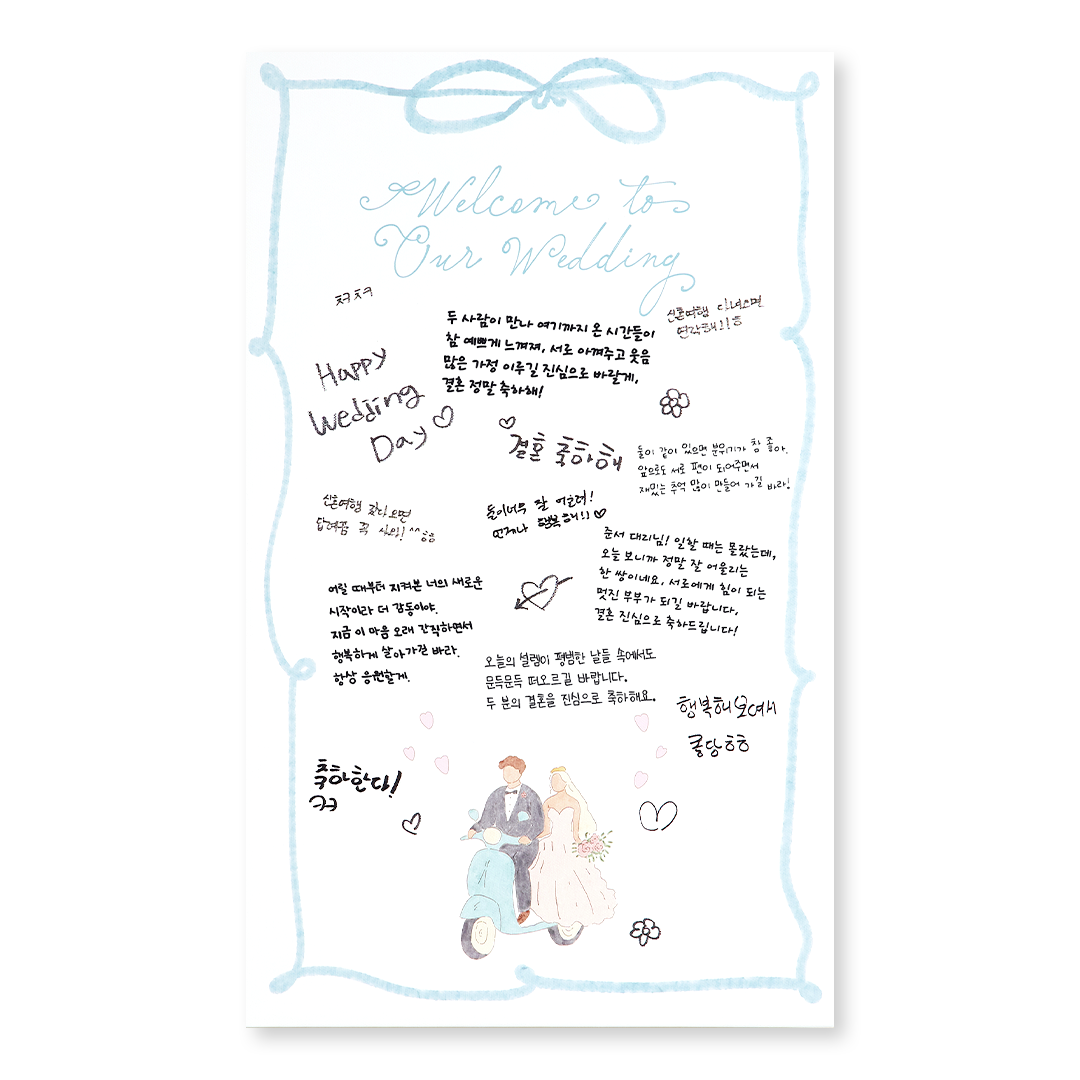 Welcome to
Our Wedding
ㅊㅋㅊㅋ
두 사람이 만나 여기까지 온 시간들이
참 예쁘게 느껴져, 서로 아껴주고 웃음
많은 가정 이루길 진심으로 바랄게,
결혼 정말 축하해!
신혼여행 다녀오면
연락해!!ㅎ
Happy
Wedding
Day
결혼 축하해
둘이 같이 있으면 분위기가 참 좋아.
앞으로도 서로 편이 되어주면서
재밌는 추억 많이 만들어 가길 바라!
신혼여행 갔다오면
답례품 꼭 사와! ^^ ㅎㅎ
둘이너무 잘 어울려!
언제나 행복해!!
준서 대리님! 일할 때는 몰랐는데,
오늘 보니까 정말 잘 어울리는
한 쌍이네요, 서로에게 힘이 되는
멋진 부부가 되길 바랍니다,
결혼 진심으로 축하드립니다!
어릴 때부터 지켜본 너의 새로운
시작이라 더 감동이야.
지금 이 마음 오래 간직하면서
행복하게 살아가길 바라.
항상 응원할게.
오늘의 설렘이 평범한 날들 속에서도
문득문득 떠오르길 바랍니다.
두 분의 결혼을 진심으로 축하해요.
행복해보여서
쿨당ㅎㅎ
축하한다!
ㅋㅋ